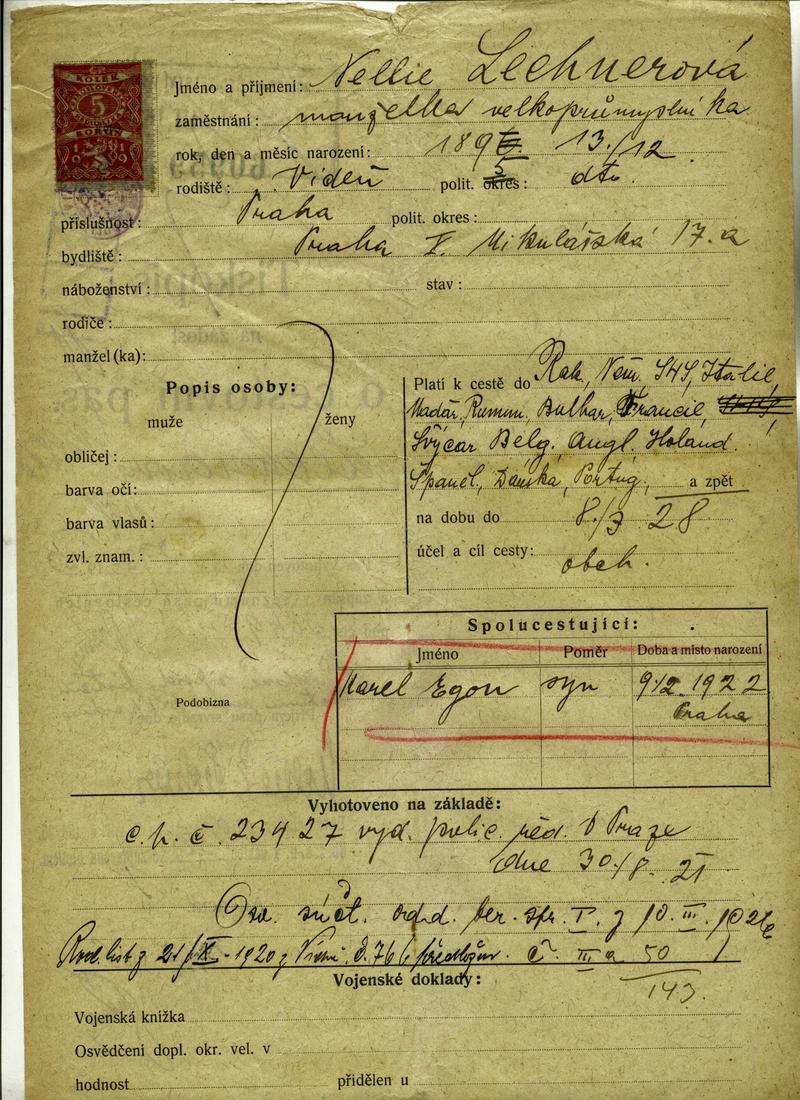 KOLEK
5
KORUN
1919
Jméno a příjmení: Nellie Lechnerová
zaměstnání: manželka velkoprůmyslníka
rok, den a měsíc narození: 189 13./12
rodiště: Vídeň polit. okres: dto.
příslušnost: Praha polit. okres:
bydliště: Praha V. Mikulášská 17.a
náboženství: stav:
rodiče:
manžel(ka):
Popis osoby:
muže ženy
obličej:
barva očí:
barva vlasů:
zvl. znam.:
Platí k cestě do Rak., Něm., SHS, Italie,
Maďar, Rumun, Bulhar, Francie,
Švýcar Belg. Angl. Holand.
Španěl, Dánska, Portug., a zpět
na dobu do 8./3 28
účel a cíl cesty:
obch.
Spolucestující:
Jméno Poměr Doba a místo narození
Karel Egon syn 9/2. 1922
Praha
Podobizna
Vyhotoveno na základě:
c. p. č. 23427 vyd. polic. řed. v Praze
dne 30./8. 21
Osv. súčt. odd. ber. spr. I. z 10. III. 1926
Rod. list z 21/X.-1920 z Vídně č. 766 předložen. č. III a 50
143.
Vojenské doklady:
Vojenská knížka
Osvědčení dopl. okr. vel. v
hodnost přidělen u